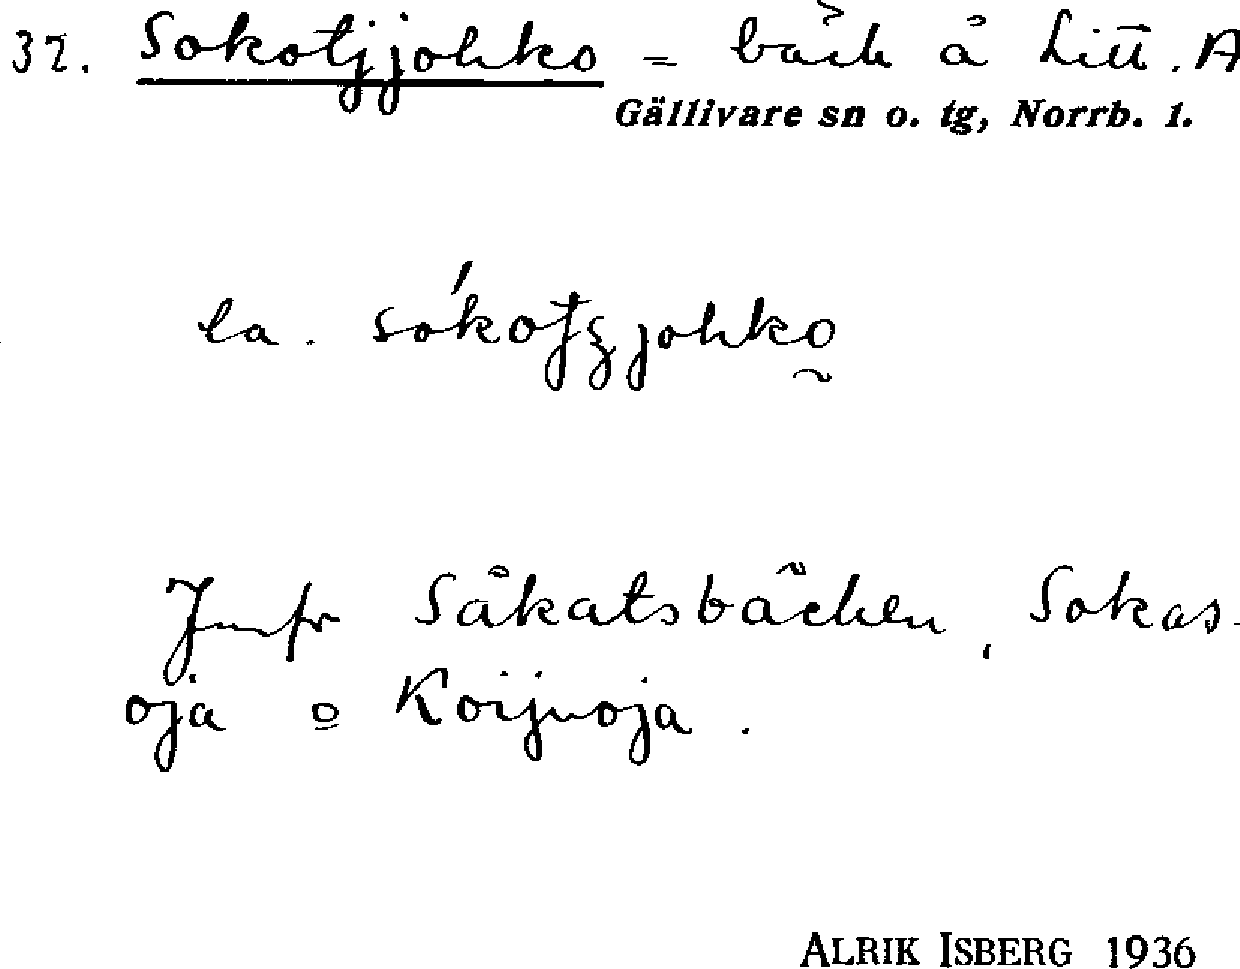 32. Sokotjjohko = bäck å Litt. A
Gällivare sn o. tg, Norrb. 1.
la. sókotʒjohko
Jmfr Såkatsbäcken, Sokas-
oja o Koijuoja.
ALRIK ISBERG 1936